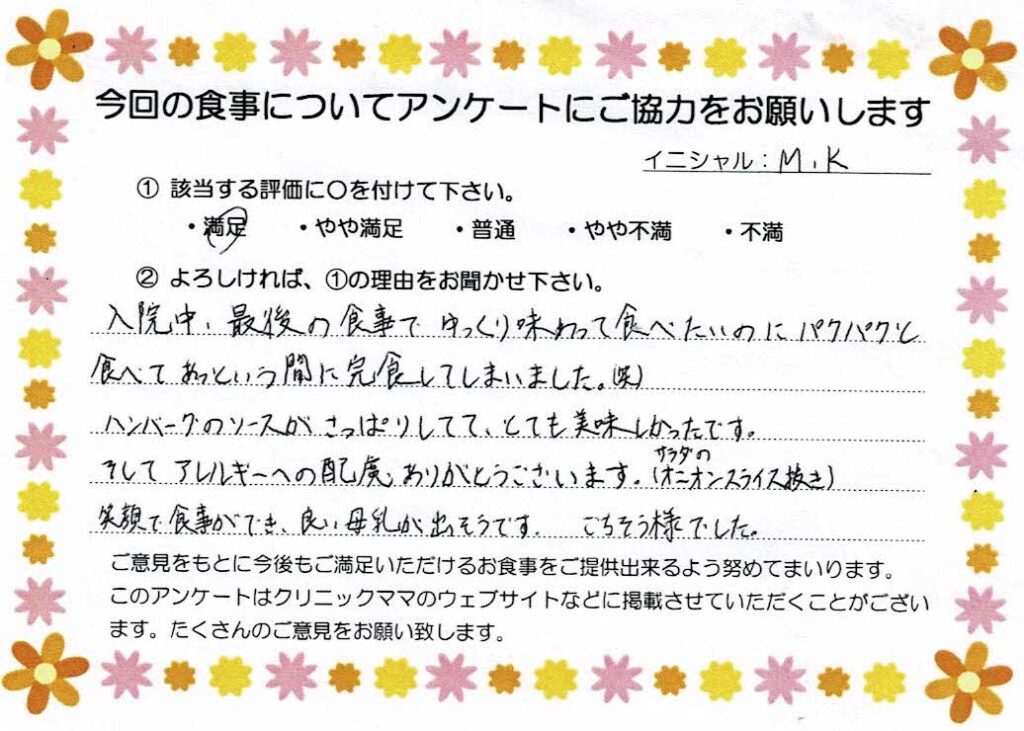 今回の食事についてアンケートにご協力をお願いします
イニシャル：M.K
① 該当する評価に○を付けて下さい。
・満足 ・やや満足 ・普通 ・やや不満 ・不満
② よろしければ、①の理由をお聞かせ下さい。
入院中、最後の食事でゆっくり味わって食べたいのにパクパクと
食べてあっという間に完食してしまいました。(笑)
ハンバーグのソースがさっぱりしてて、とても美味しかったです。
そしてアレルギーへの配慮、ありがとうございます。(サラダのオニオンスライス抜き)
笑顔で食事ができ、良い母乳が出そうです。 ごちそう様でした。
ご意見をもとに今後もご満足いただけるお食事をご提供出来るよう努めてまいります。
このアンケートはクリニックママのウェブサイトなどに掲載させていただくことがござい
ます。たくさんのご意見をお願い致します。